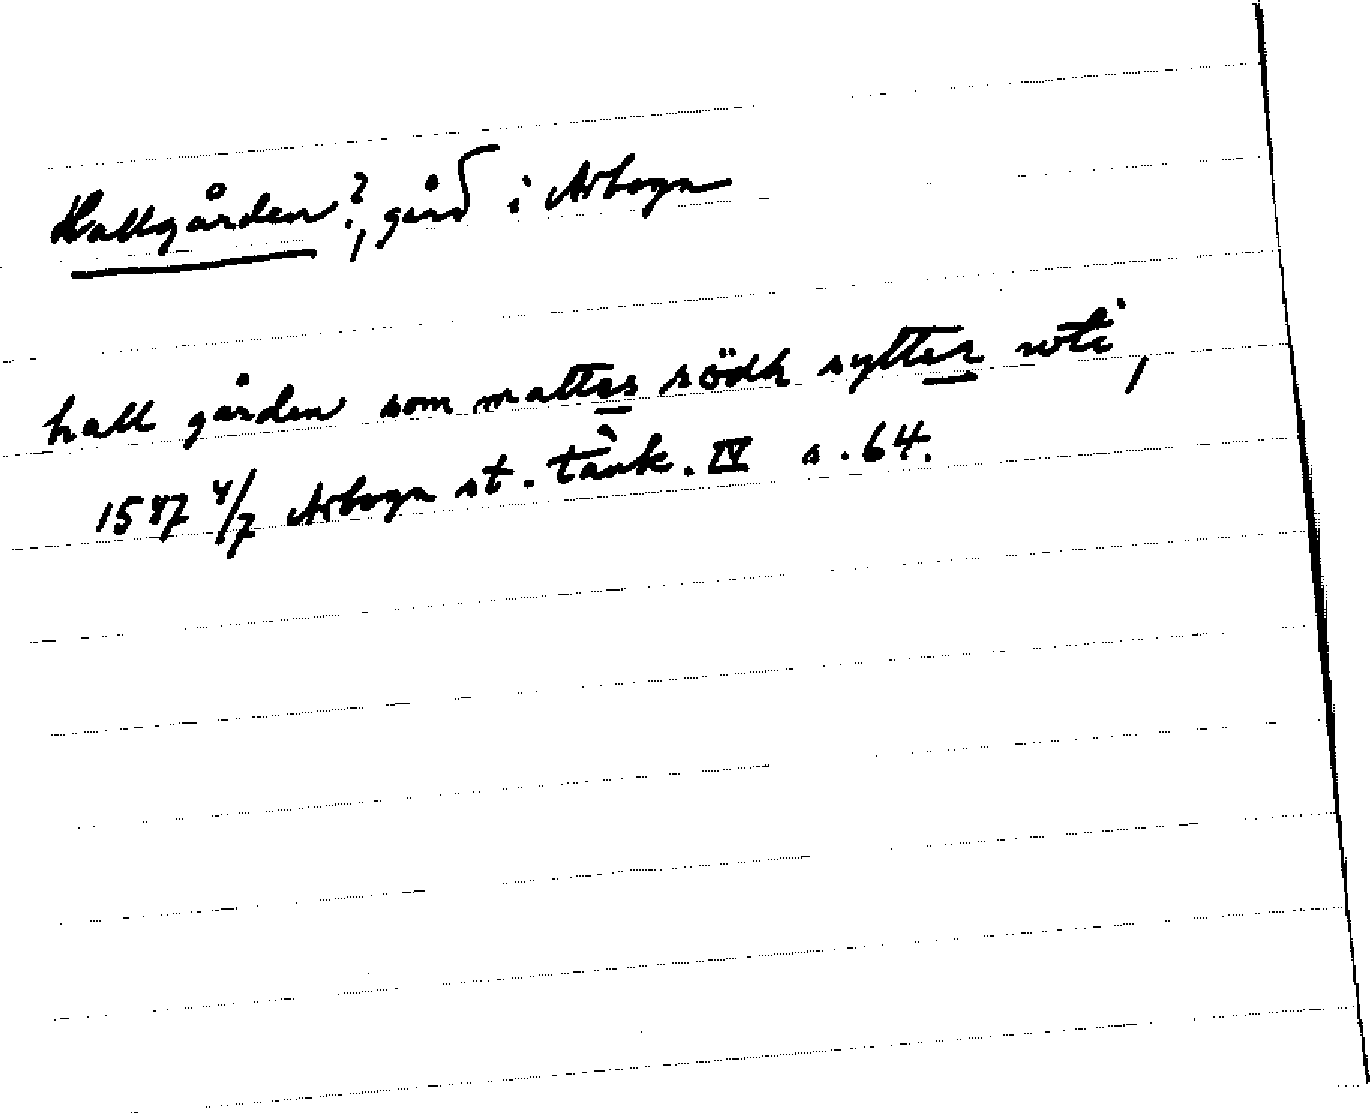 Hallgården?, gård i Arboga
hall gården som mattes södh sytter uti,
1547 4/7 Arboga st. tänk. IV s. 64.